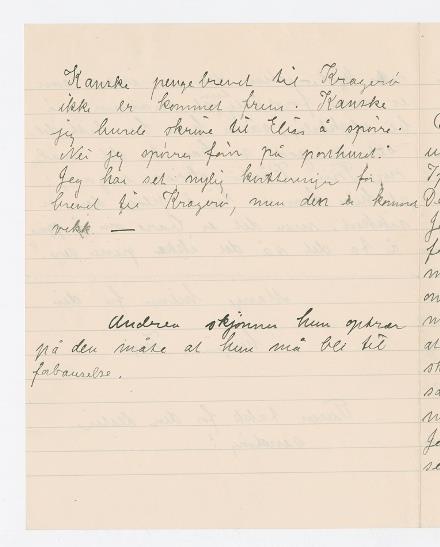 Kanske pengebrevet til Kragerø
ikke er kommet frem. Kanske
jeg burde skrive til Elias å spørre.
Nei jeg spørrer først på posthuset.
Jeg har set nylig kvitteringer for
brevet til Kragerø, men den er kommet
vekk —
Andrea skjønner hun optrær
på den måte at hun må bli til
forbauselse.